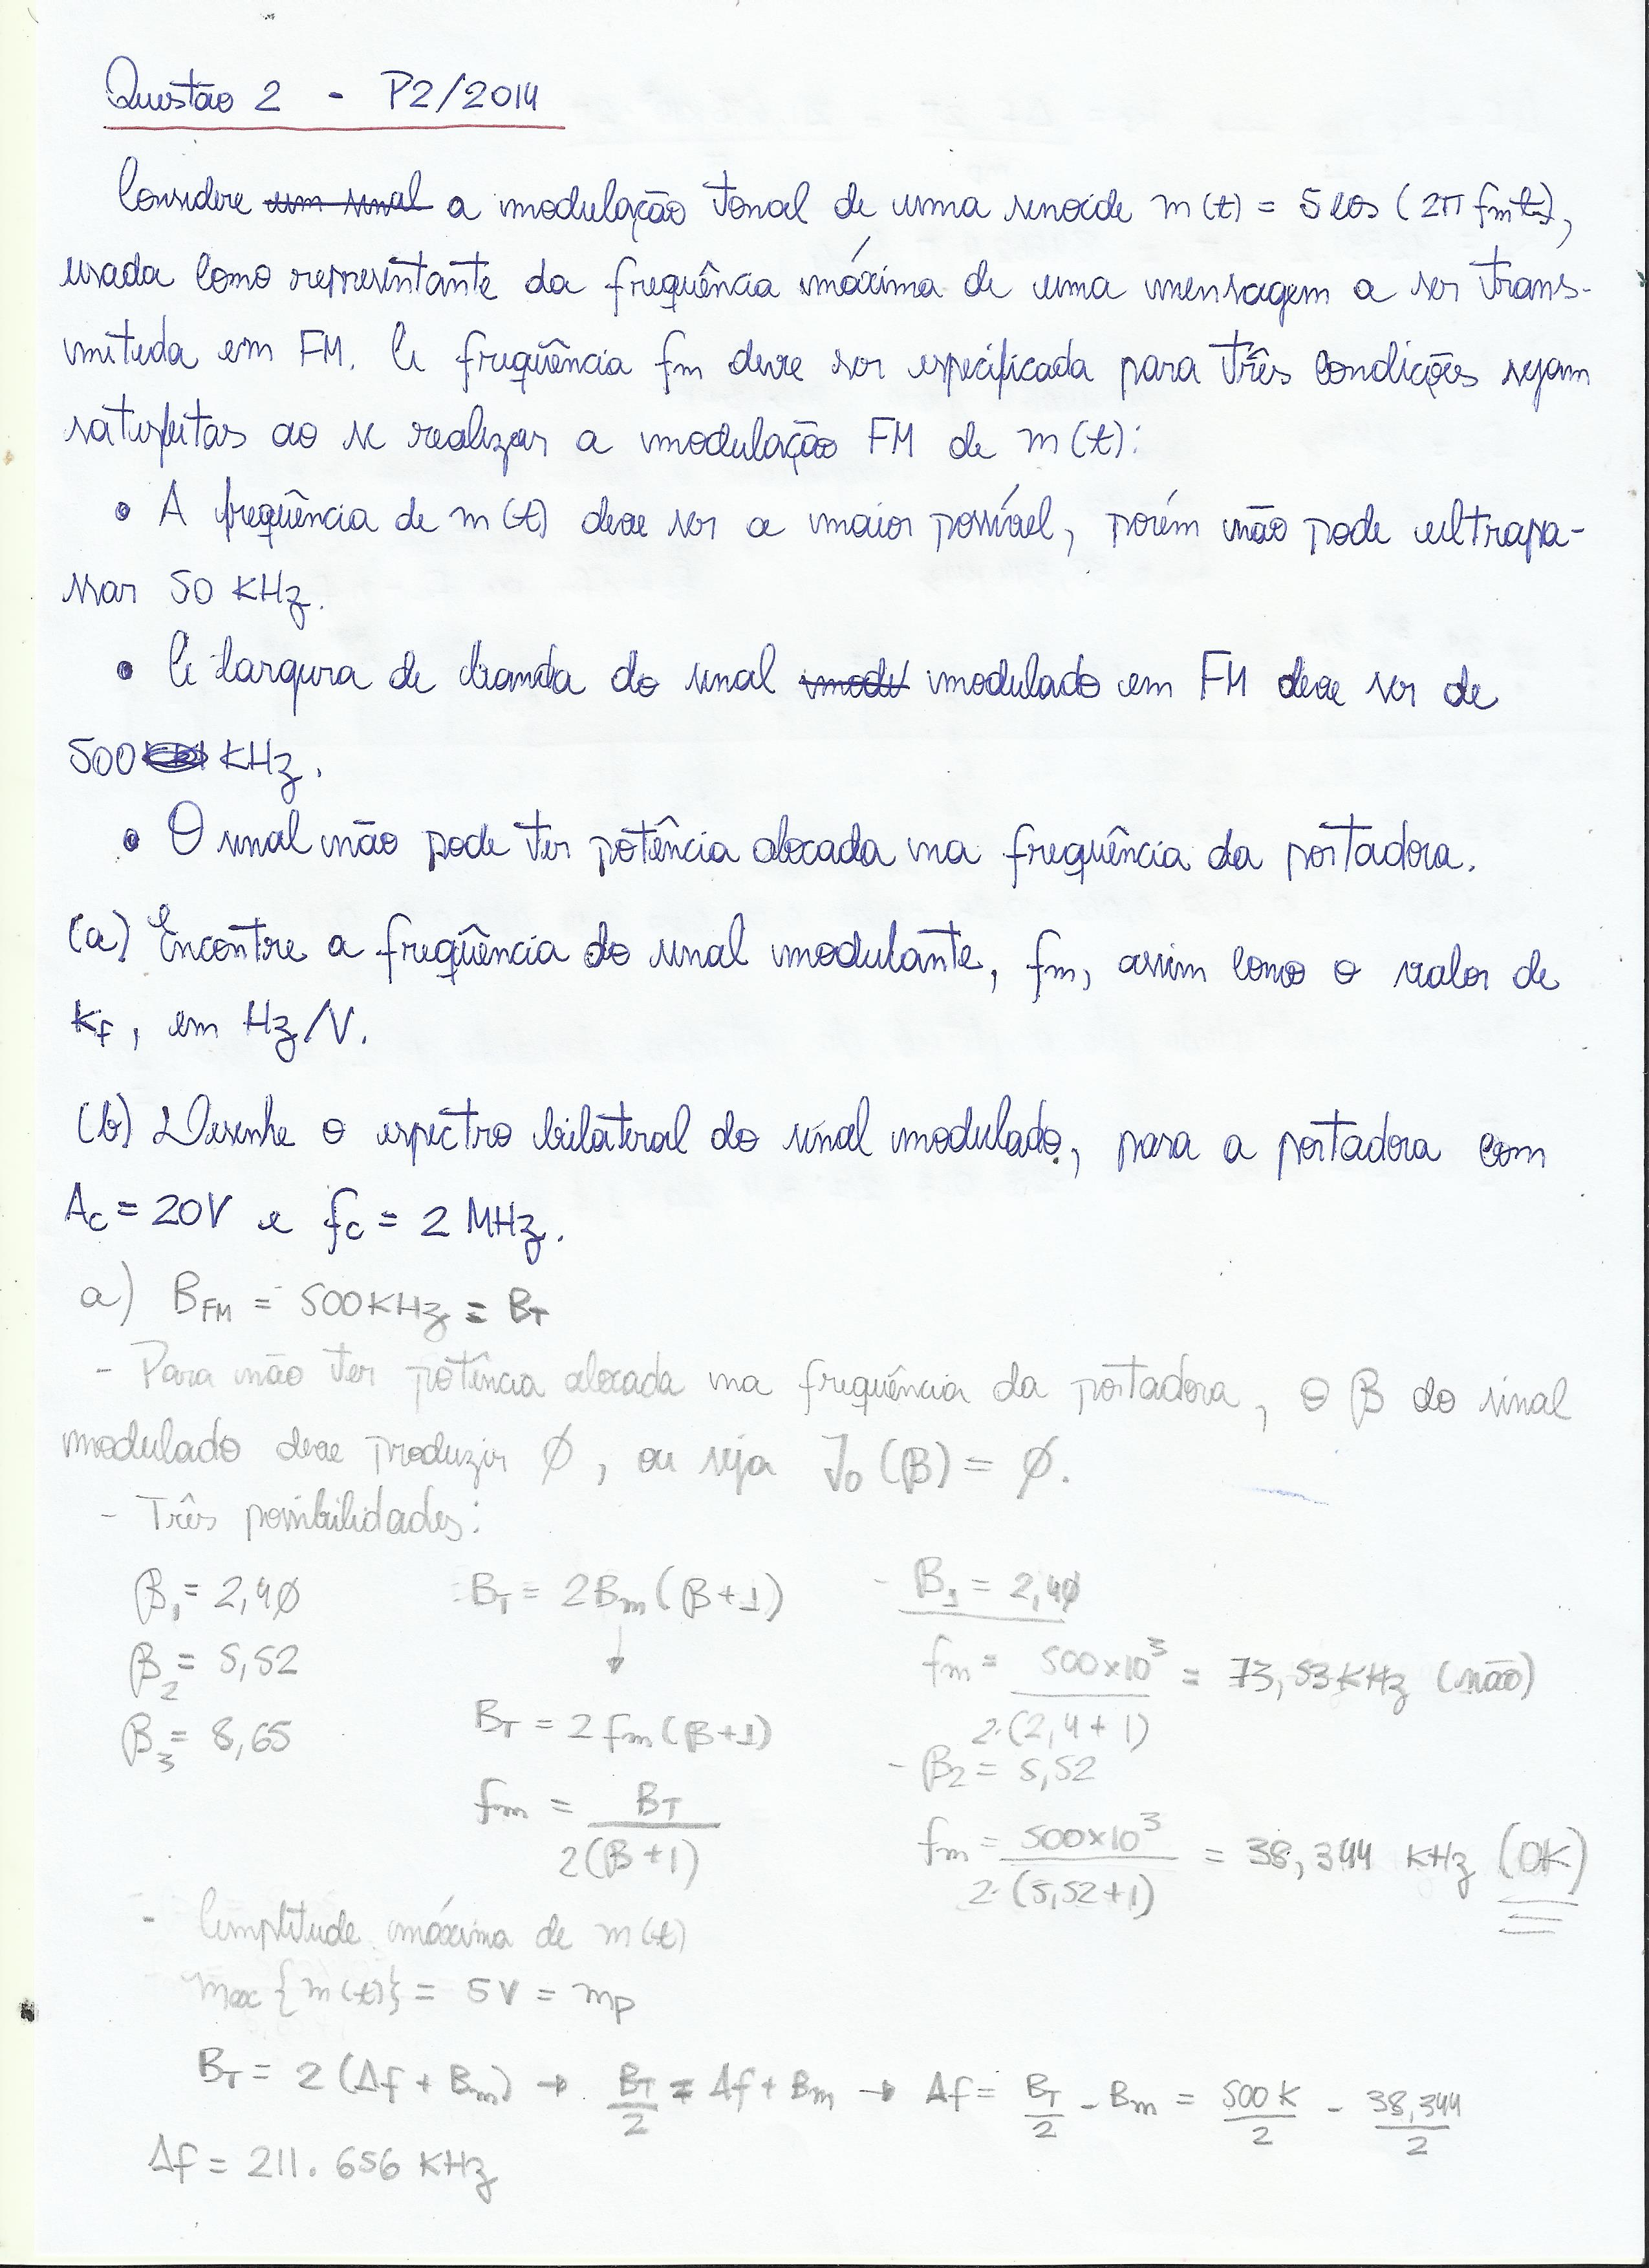 Questão 2 - P2/2014
Considere um sinal a modulação tonal de uma senoide m(t) = 5 cos (2π fmt),
usada como representante da frequência máxima de uma mensagem a ser trans-
mitida em FM. A freqüência fm deve ser especificada para três condições sejam
satisfeitas ao se realizar a modulação FM de m(t):
• A freqüência de m(t) deve ser a maior possível, porém não pode ultrapa-
ssar 50 KHz.
• A largura de banda do sinal modu modulado em FM deve ser de
500 KHz.
• O sinal não pode ter potência alocada na frequência da portadora.
(a) Encontre a freqüência do sinal modulante, fm, assim como o valor de
kf, em Hz/V.
(b) Desenhe o espectro bilateral do sinal modulado, para a portadora com
Ac = 20V e fc = 2 MHz.
a) BFM = 500KHz = BT
- Para não ter potência alocada na frequência da portadora, o β do sinal
modulado deve produzir ∅, ou seja J₀(β) = ∅.
- Três possibilidades:
β₁ = 2,4∅
β₂ = 5,52
β₃ = 8,65
BT = 2Bm(β+1)
↓
BT = 2fm(β+1)
fm = BT / 2(β+1)
- β₁ = 2,4∅
fm = 500x10³ / 2·(2,4+1) = 73,53KHz (não)
- β₂ = 5,52
fm = 500x10³ / 2·(5,52+1) = 38,344 KHz (OK)
- Amplitude máxima de m(t)
max {m(t)} = 5V = mp
BT = 2(Δf + Bm) → BT/2 = Δf + Bm → Δf = BT/2 - Bm = 500K/2 - 38,344/2
Δf = 211.656 KHz